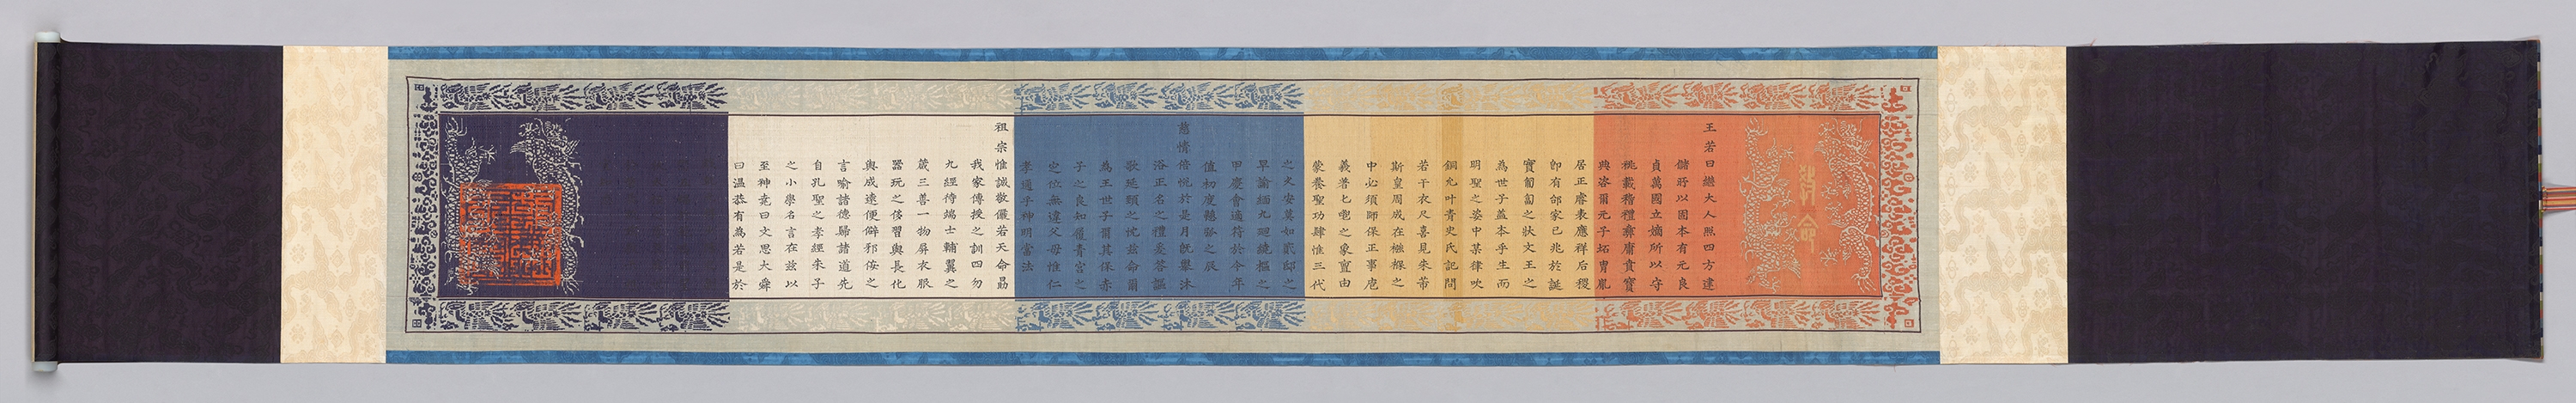 敎命
王若曰繼大人照四方建
儲所以固本有元良
貞萬國立嫡所以守
祧載稽禮彝庸賁寶
典咨爾元子坧冑胤
居正睿表應祥后稷
卽有邰家已兆於誕
寶匍匐之狀文王之
爲世子蓋本乎生而
明聖之姿中某律吹
銅允叶靑史氏記問
若干衣尺喜見朱芾
斯皇周成在襁褓之
中必須師保正事庖
羲著匕鬯之象亶由
蒙養聖功肆惟三代
之久安莫如貳邸之
早諭緬九廻繞樞之
甲慶會適符於今年
値初度轉之辰
慈情倍悅於是月旣擧沐
浴正名之禮爰答謳
歌延頸之忱玆命爾
爲王世子爾其保赤
子之良知履靑宮之
定位無違父母惟仁
孝通乎神明當法
祖宗惟誠敬儼若天命勗
我家傳授之訓四勿
九經待端士輔翼之
箴三善一物屛衣服
器玩之侈習與長化
與成遠便僻邪侫之
言喩諸德歸諸道先
自孔聖之孝經朱子
之小學名言在玆以
至神堯曰文思大舜
曰溫恭有爲若是於